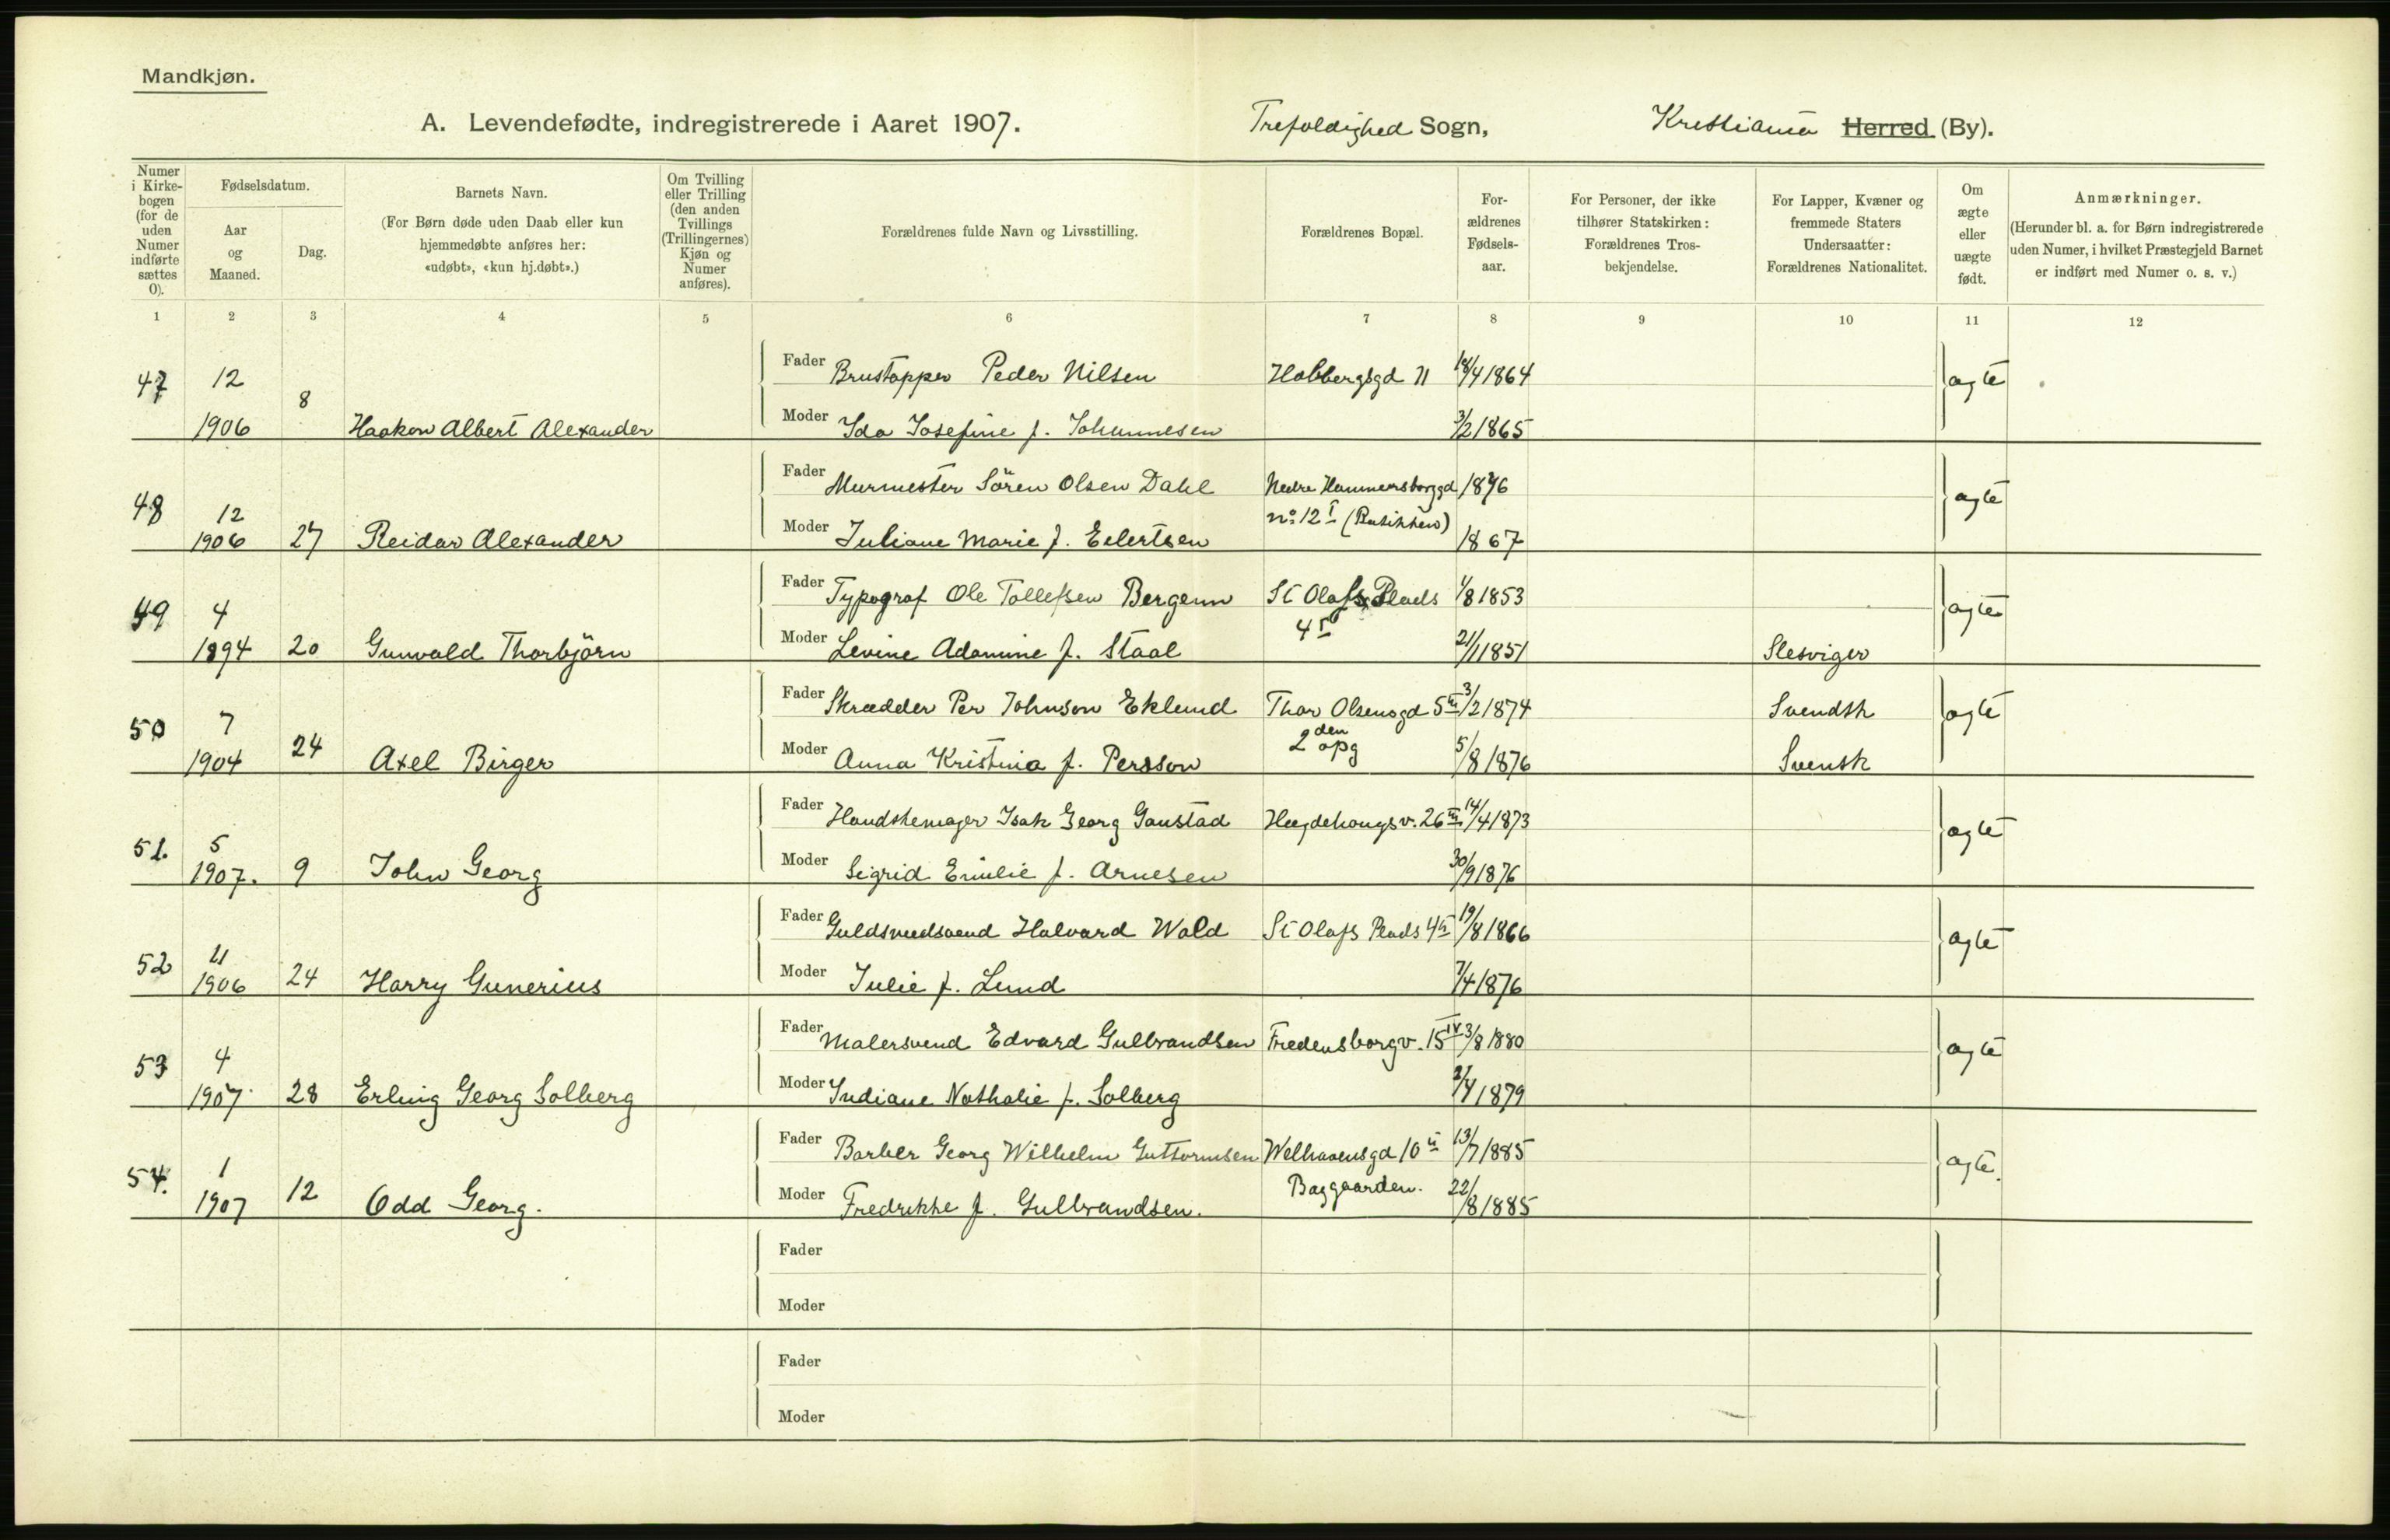 Mandkjøn.
A. Levendefødte, indregistrerede i Aaret 1907. Trefoldighed Sogn, Kristiania Herred (By).
Numer i Kirke-bogen (for de uden Numer indførte sættes 0).
Fødselsdatum.
Aar og Maaned.
Dag.
Barnets Navn.
(For Børn døde uden Daab eller kun hjemmedøbte anføres her: «udøbt», «kun hj.døbt».)
Om Tvilling eller Trilling (den anden Tvillings (Trillingernes) Kjøn og Numer anføres).
Forældrenes fulde Navn og Livsstilling.
Forældrenes Bopæl.
For-ældrenes Fødsels-aar.
For Personer, der ikke tilhører Statskirken: Forældrenes Tros-bekjendelse.
For Lapper, Kvæner og fremmede Staters Undersaatter: Forældrenes Nationalitet.
Om ægte eller uægte født.
Anmærkninger.
(Herunder bl. a. for Børn indregistrerede uden Numer, i hvilket Præstegjeld Barnet er indført med Numer o. s. v.)
1 2 3 4 5 6 7 8 9 10 11 12
47 12 8 Fader Brustapper Peder Nilsen 11 /4 1864 ægte
1906 Haakon Albert Alexander Moder Ida Josefine f. Johannesen 3/2 1865
48 12 Fader Murmester Sören Olsen Dahl Nedre Hammersborggd 1876 ægte
1906 27 Reidar Alexander Moder Juliane Marie f. Eilertsen no 12 I (Butikken) 1867
49 4 Fader Typograf Ole Tollefsen Bergenn St Olafs Plads 1/8 1853 ægte
1894 20 Gunvald Thorbjörn Moder Levine Adamine f. Staal 4 21/1 1851 Slesviger
50 7 Fader Skrædder Per Johnson Eklund Thor Olsensgd 5 III 3/2 1874 Svendsk ægte
1904 24 Axel Birger Moder Anna Kristina f. Persson 2den opg 5/8 1876 Svensk
51. 5 Fader Handskemager Isak Georg Gaustad Hægdehougsv. 26 III 14/4 1873 ægte
1907. 9 John Georg Moder Sigrid Emilie f. Arnesen 30/9 1876
52 11 Fader Guldsmedsvend Halvard Wold St Olafs Plads 4 19/8 1866 ægte
1906 24 Harry Gunerius Moder Julie f. Lund 7/4 1876
53 4 Fader Malersvend Edvard Gulbrandsen Fredensborgv. 15 IV 3/8 1880 ægte
1907 28 Erling Georg Solberg Moder Indiane Nathalie f. Solberg 1879
54. 1 Fader Barber Georg Wilhelm Guttormsen Welhavensgd 10 II 13/7 1885 ægte.
1907 12 Odd Georg. Moder Fredrikke f. Gulbrandsen. Baggaarden. 22/8 1885
Fader
Moder
Fader
Moder